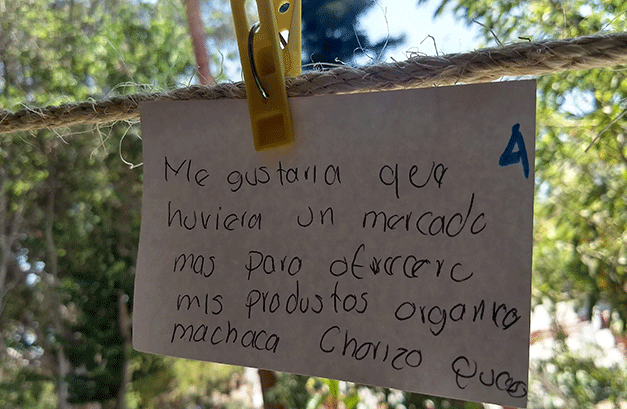 A
Me gustaria que
huviera un mercado
mas para ofrecerc
mis produstos organico
machaca Chorizo Quesos